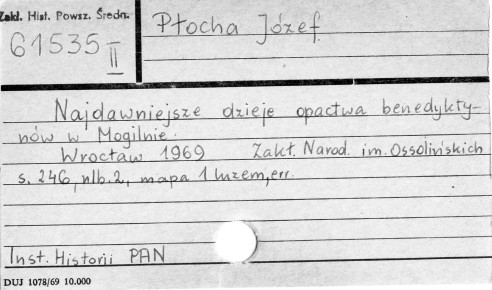 Zakł. Hist. Powsz. Średn.
61535
II
Płocha Józef
Najdawniejsze dzieje opactwa benedykty-
nów w Mogilnie.
Wrocław 1969 Zakł. Narod. im. Ossolińskich
s. 246, nlb. 2, mapa 1 luzem, err.
Inst. Historii PAN
DUJ 1078/69 10.000